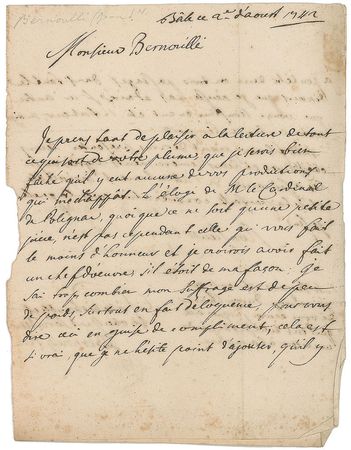 Bernoulli
Bâle ce 2e d'aoust 1742
Monsieur Bernoulli
Je prens tant de plaisir à la lecture de tout
ce qui sort de votre plume, que je serois bien
faché qu'il y eut aucune de vos productions
qui m'échappât. L'éloge de Mr le Cardinal
de Polignac, quoi que ce ne soit qu'une petite
pièce, n'est pas cependant celle qui vous fait
le moins d'honneur et je croirois avoir fait
un chef d'oeuvre s'il étoit de ma façon: Je
sai trop combien mon suffrage est de peu
de poids, surtout en fait d'eloquence, pour vous
dire ceci en guise de compliment; cela est
si vrai, que je ne hésite point d'ajouter, qu'il y